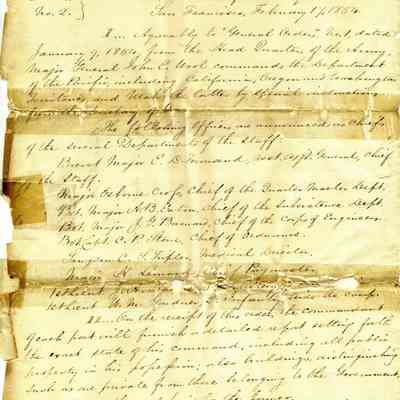 No. 2. }
San Francisco, February 17, 1854.
I... Agreeably to "General Orders," No. 1, dated
January 9, 1854, from the Head Quarters of the Army,
Major General John E. Wool commands the Department
of the Pacific, including California, Oregon and Washington
Territories, and Utah: the latter by special instructions
from the
The following Officers are announced as Chiefs
of the several Departments of the Staff.
Brevet Major E. D. Townsend, Asst. Adjt. General, Chief
of the Staff.
Major Osborne Cross, Chief of the Quarter Master Dept.
Bvt. Major A. B. Eaton, Chief of the Subsistence Dept.
Bvt. Major J. G. Barnard, Chief of the Corps of Engineers.
Bvt. Capt. C. P. Stone, Chief of Ordnance.
Surgeon C. S. Tripler, Medical Director.
Major H. Leonard, Chief Paymaster.
1st Lieut.
1st Lieut W. M. Gardner, Infantry, aide de camp.
II... On the receipt of this order, the commandant
of each post will furnish a detailed report setting forth
the exact state of his command, including all public
property in his possession; also buildings, distinguishing
such as are private from those belonging to the Government,